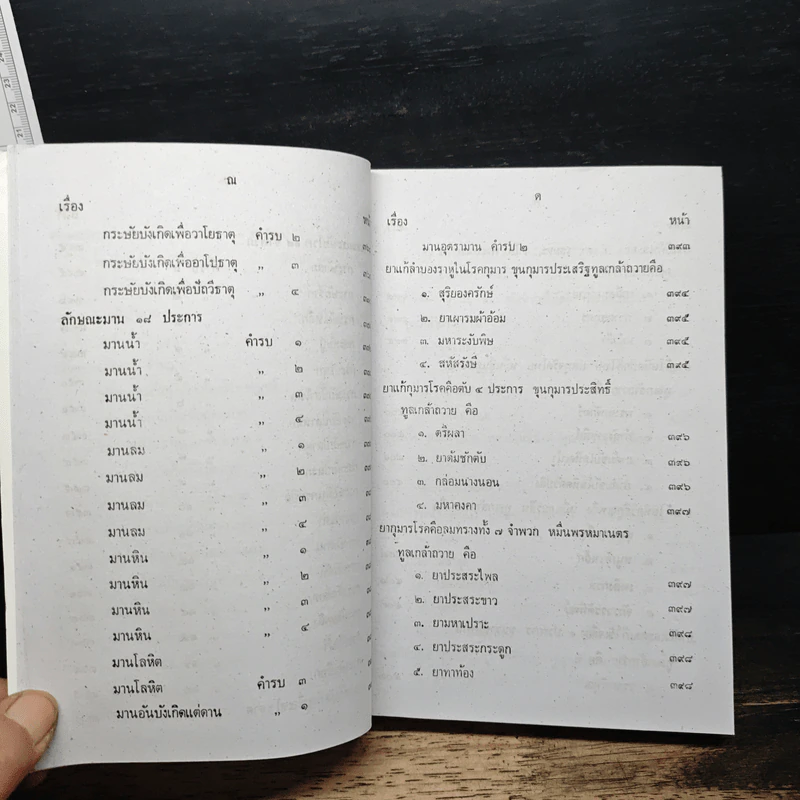 ณ
เรื่อง
กระษัยบังเกิดเพื่อวาโยธาตุ คำรบ ๒
กระษัยบังเกิดเพื่ออาโปธาตุ ,, ๓
กระษัยบังเกิดเพื่อปัถวีธาตุ ,, ๔
ลักษณะมาน ๑๘ ประการ
มานน้ำ คำรบ ๑
มานน้ำ ,, ๒
มานน้ำ ,, ๓
มานน้ำ ,, ๔
มานลม ,, ๑
มานลม ,, ๒
มานลม ,, ๓
มานลม ,, ๔
มานหิน ,, ๑
มานหิน ,, ๒
มานหิน ,, ๓
มานหิน ,, ๔
มานโลหิต
มานโลหิต คำรบ ๓
มานอันบังเกิดแต่ดาน ,, ๑
ด
เรื่อง หน้า
มานอุตรามาน คำรบ ๒ ๓๙๓
ยาแก้ลำบองราหูในโรคกุมาร ขุนกุมารประเสริฐทูลเกล้าถวายคือ
๑. สุริยองครักษ์ ๓๙๔
๒. ยาเผารมผ้าอ้อม ๓๙๕
๓. มหาระงับพิษ ๓๙๕
๔. สหัสรังษี ๓๙๕
ยาแก้กุมารโรคคือตับ ๔ ประการ ขุนกุมารประสิทธิ์
ทูลเกล้าถวาย คือ
๑. ตรีผลา ๓๙๖
๒. ยาต้มชักตับ ๓๙๖
๓. กล่อมนางนอน ๓๙๖
๔. มหาคงคา ๓๙๗
ยากุมารโรคคือลมทรางทั้ง ๗ จำพวก หมื่นพรหมาเนตร
ทูลเกล้าถวาย คือ
๑. ยาประสระไพล ๓๙๗
๒. ยาประสระขาว ๓๙๗
๓. ยามหาเปราะ ๓๙๘
๔. ยาประสระกระดูก ๓๙๘
๕. ยาทาท้อง ๓๙๘